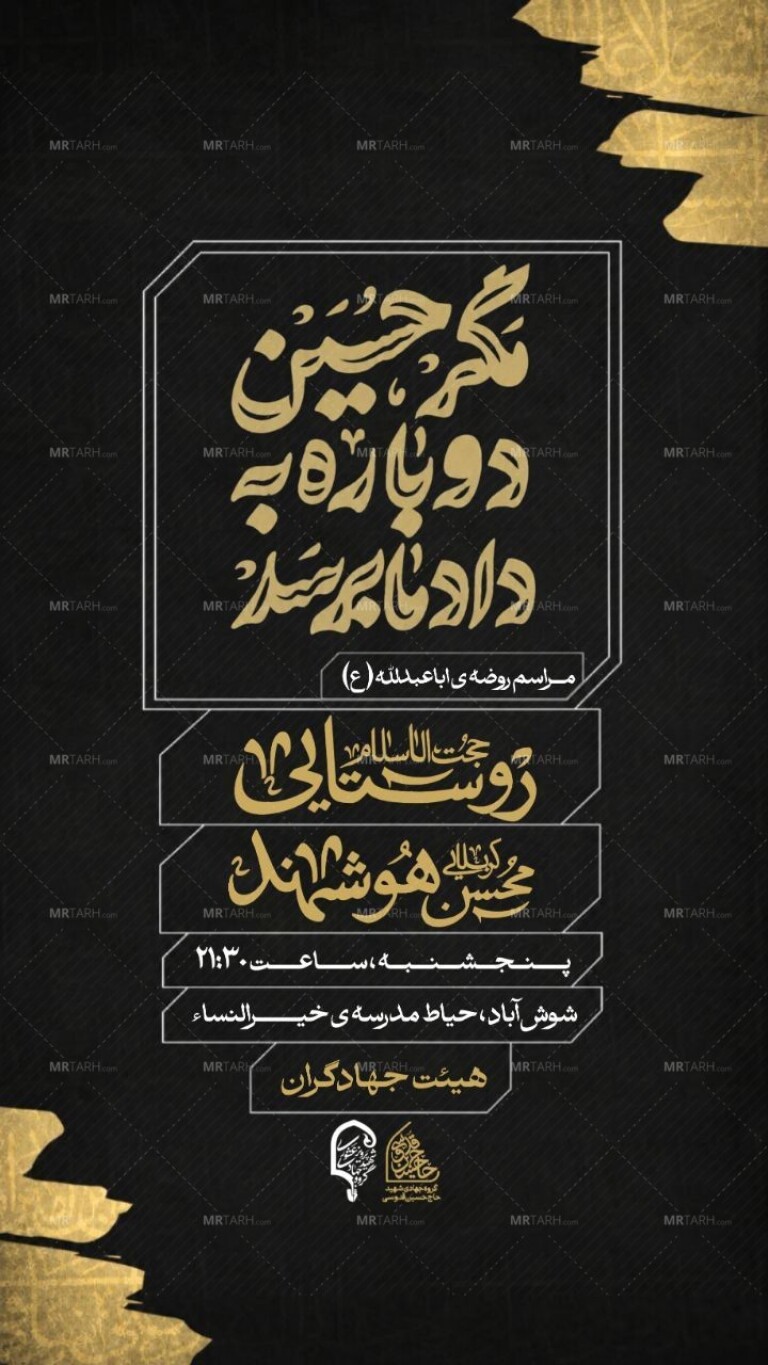 مگر حسین
دوباره به
داد ما برسد
مراسم روضه‌ی اباعبدلله (ع)
حجت‌الاسلام
روستایی
کربلایی
محسن هوشمند
پنجشنبه، ساعت ۲۱:۳۰
شوش آباد، حیاط مدرسه‌ی خیرالنساء
هیئت جهادگران
گروه جهادی شهید
حاج حسین قدوسی
MRTARH.com